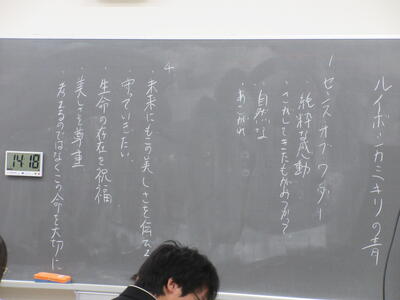 ルイボシカミキリの青
1 センスオブワンダー
純粋な感動
・これしてきたものがみつかる?
・自然な
・あこがれ
4
・未来にもこの美しさを伝える
・守っていきたい
・生命の存在を祝福
・美しさを尊重
・考えるのではなくこの命を大切に
14 18